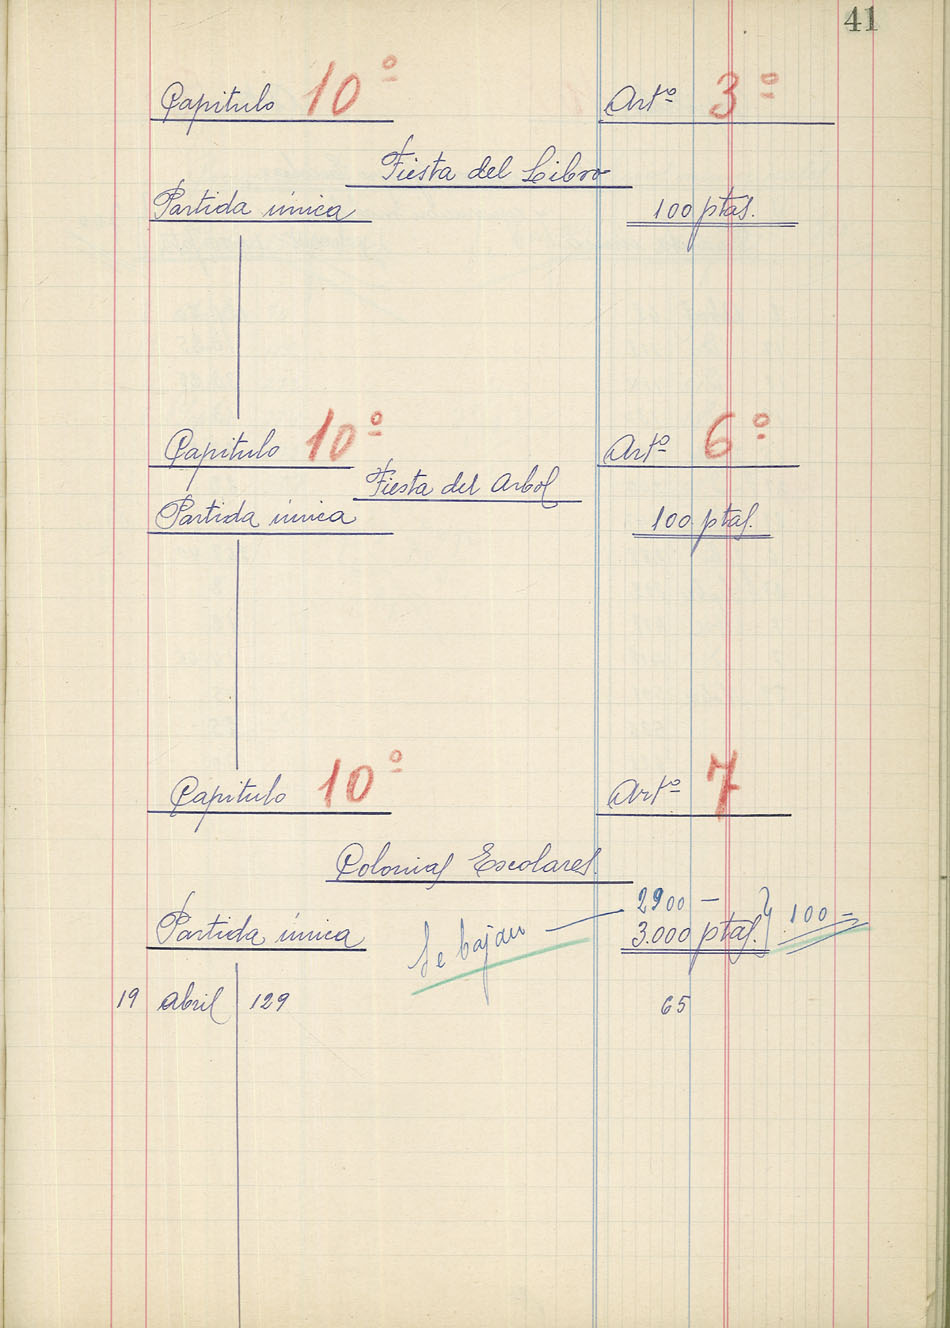 41
Capitulo 10º Artº 3º
Fiesta del Libro
Partida única 100 ptas.
Capitulo 10º Artº 6º
Fiesta del Arbol
Partida única 100 ptas.
Capitulo 10º Artº 7
Colonias Escolares.
Se bajan — 2900 —
Partida única 3.000 ptas. } 100 =
19 abril 129 65